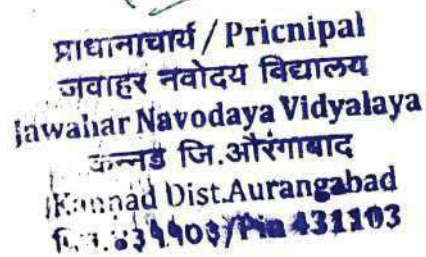 प्राधानाचार्य / Pricnipal
जवाहर नवोदय विद्यालय
Jawahar Navodaya Vidyalaya
कन्नड जि.औरंगाबाद
Kannad Dist.Aurangabad
431103/Pin 431103